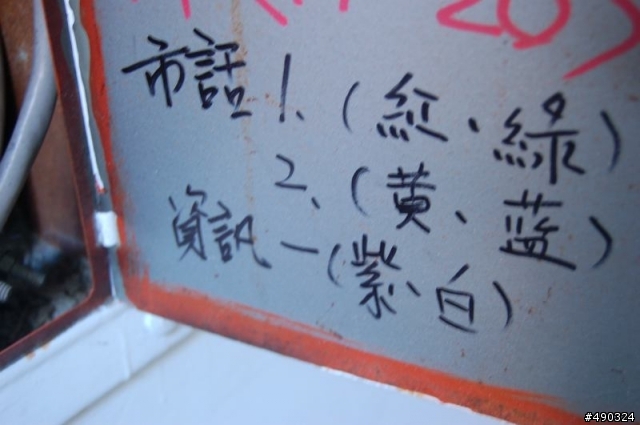 市話 1、(紅、綠)
2、(黃、蓝)
資訊一(紫、白)
#490324